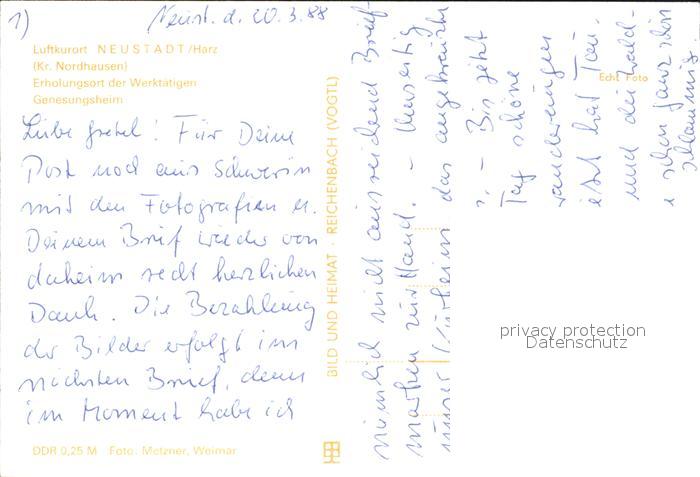 1) Neust. d. 20.3.88
Luftkurort NEUSTADT/Harz
(Kr. Nordhausen)
Erholungsort der Werktätigen
Genesungsheim
Liebe Gretel! Für Deine
Post noch aus Schwerin
mit den Fotografien u.
Deinem Brief wieder von
daheim recht herzlichen
Dank. Die Bezahlung
der Bilder erfolgt im
nächsten Brief, denn
im Moment habe ich
DDR 0,25 M Foto: Metzner, Weimar
BILD UND HEIMAT · REICHENBACH (VOGTL)
nämlich nicht ausreichend Brief-
marken zur Hand. –
unser Kurheim das angekreuzte
– Bis jetzt
Tag schöne
wanderungen
etzt hat Tau-
und die Wald-
schon ganz schön
schlammig.
Echt Foto
privacy protection
Datenschutz